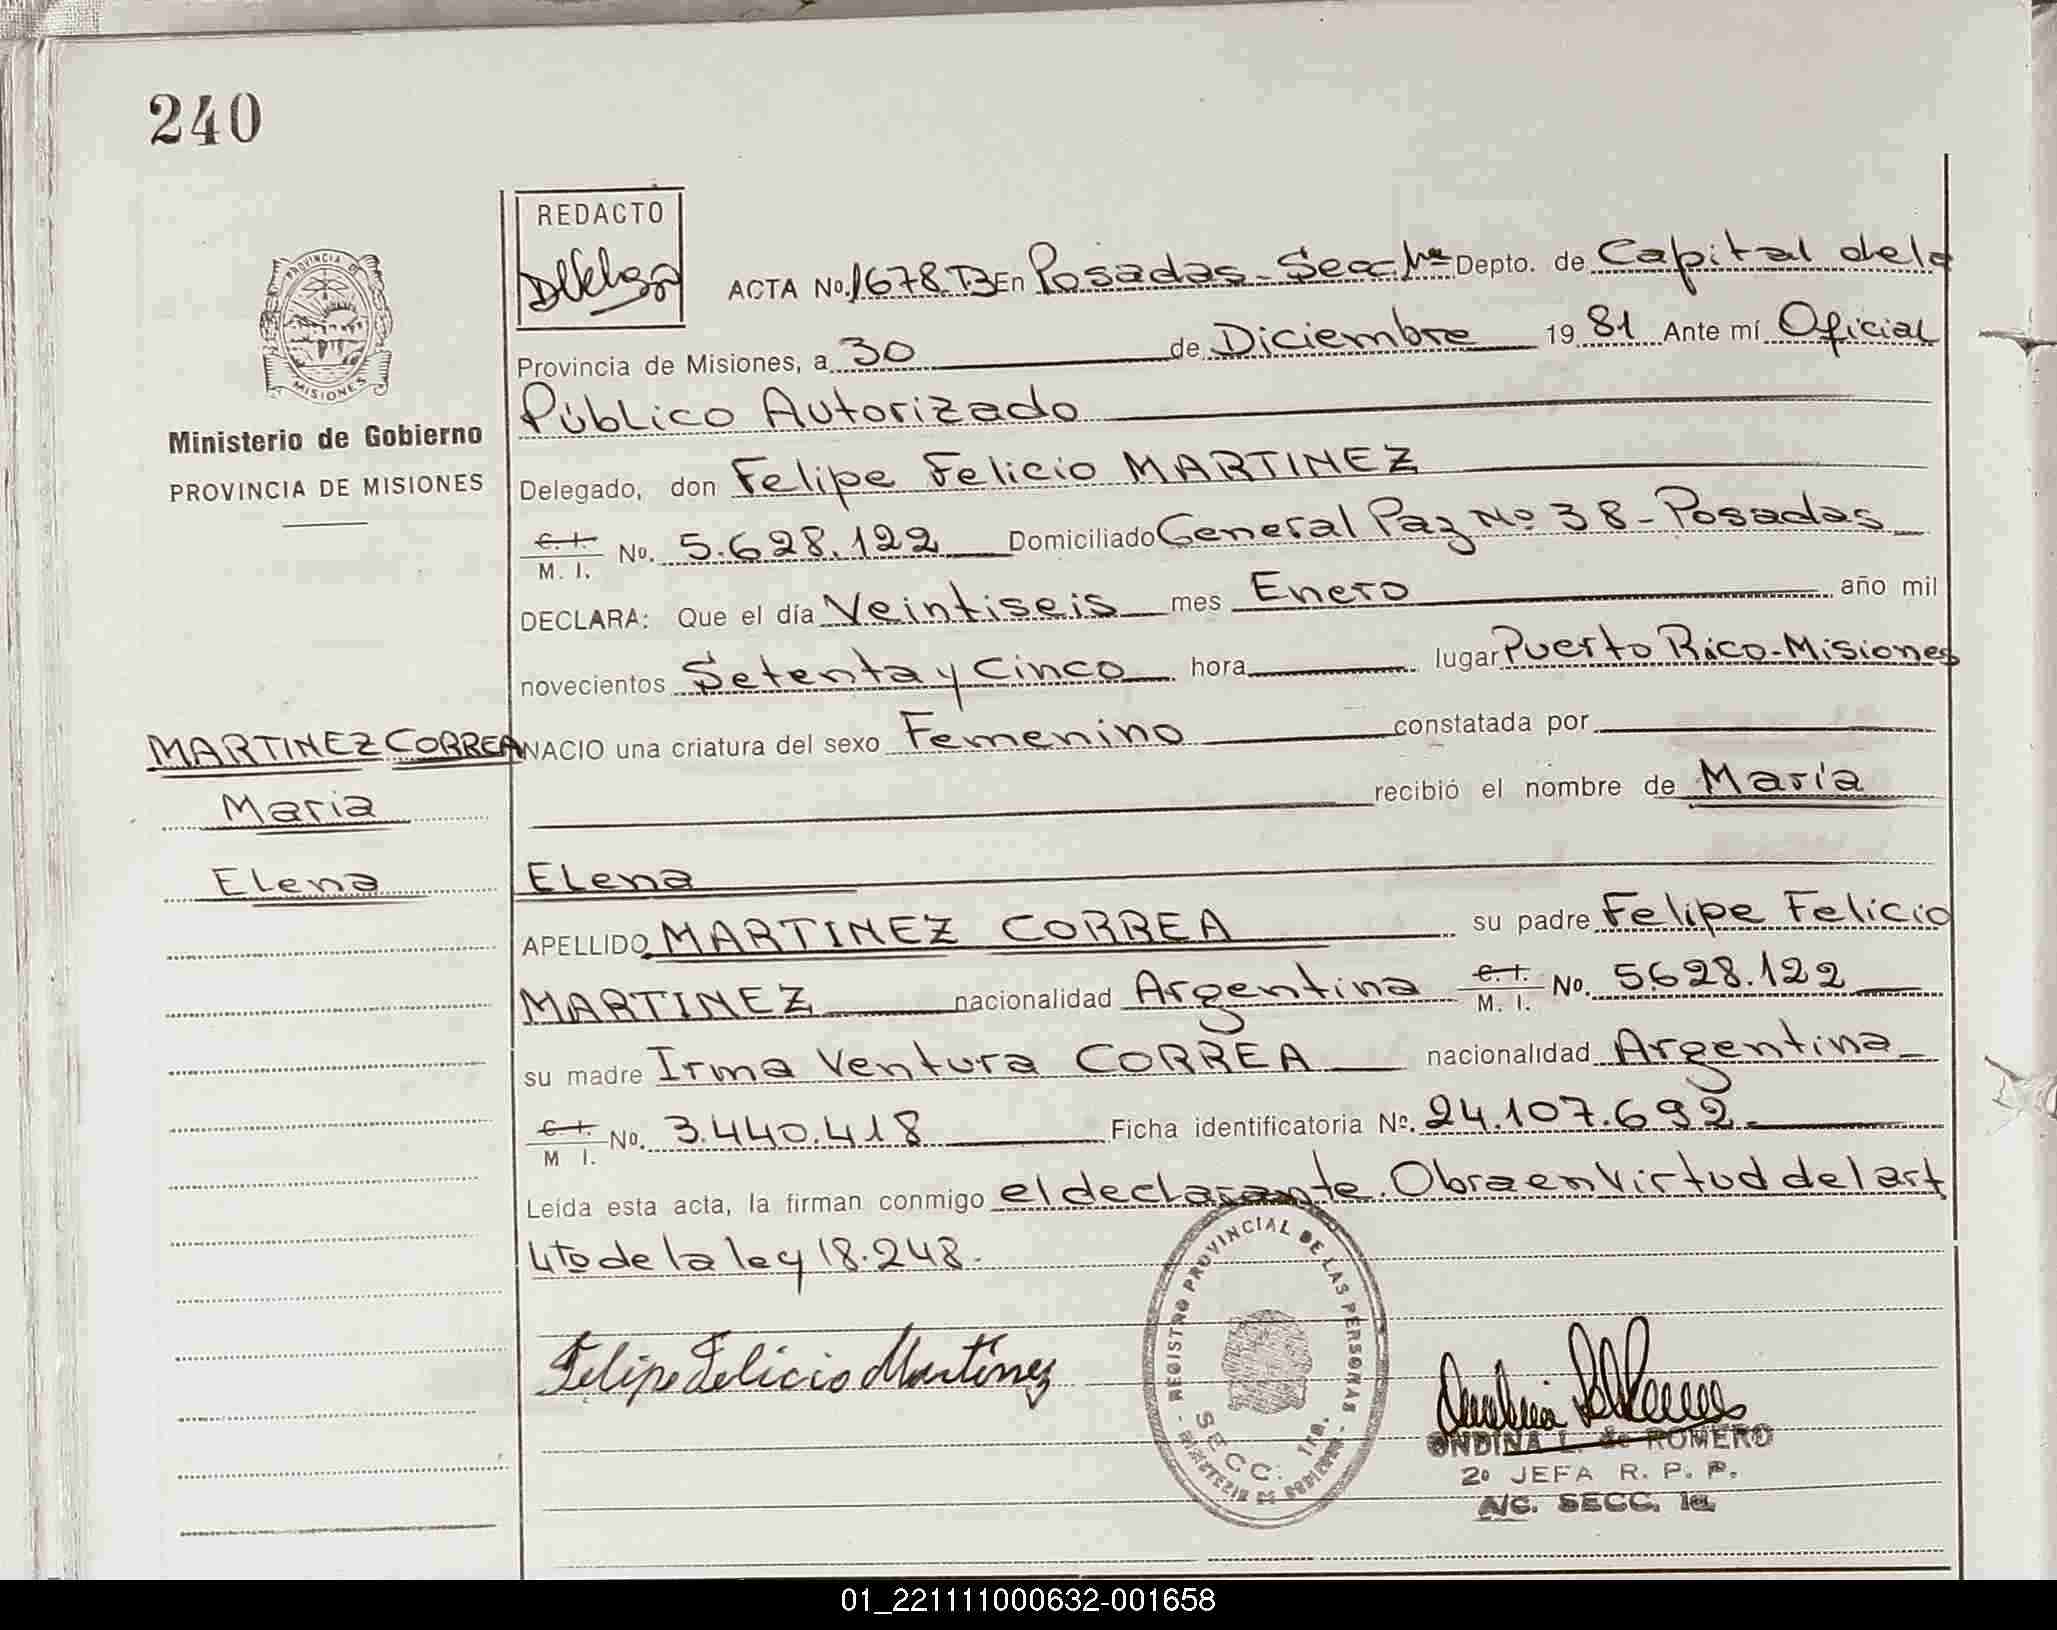 240
REDACTO
ACTA No. 1678 T3 En Posadas - Secc. 1ra Depto. de Capital de la
Provincia de Misiones, a 30 de Diciembre 19 81 Ante mí Oficial
Público Autorizado
PROVINCIA DE
MISIONES
Ministerio de Gobierno
PROVINCIA DE MISIONES
Delegado, don Felipe Felicio MARTINEZ
C. I.
M. I. No. 5.628.122 Domiciliado General Paz No 38 - Posadas
DECLARA: Que el día Veintiseis mes Enero año mil
novecientos Setenta y Cinco hora lugar Puerto Rico - Misiones
MARTINEZ CORREA
Maria
Elena
NACIO una criatura del sexo Femenino constatada por
recibió el nombre de María
Elena
APELLIDO MARTINEZ CORREA su padre Felipe Felicio
MARTINEZ nacionalidad Argentina C. I. M. I. No. 5.628.122
su madre Irma Ventura CORREA nacionalidad Argentina
C. I.
M I. No. 3.440.418 Ficha identificatoria No. 24.107.692
Leída esta acta, la firman conmigo el declarante. Obra en Virtud del art
4to de la ley 18.248.
Felipe Felicio Martínez
REGISTRO PROVINCIAL DE LAS PERSONAS
SECC. 1ra.
MINISTERIO DE GOBIERNO
ONDINA L. de ROMERO
2º JEFA R. P. P.
A/C. SECC. 1a.
01_221111000632-001658